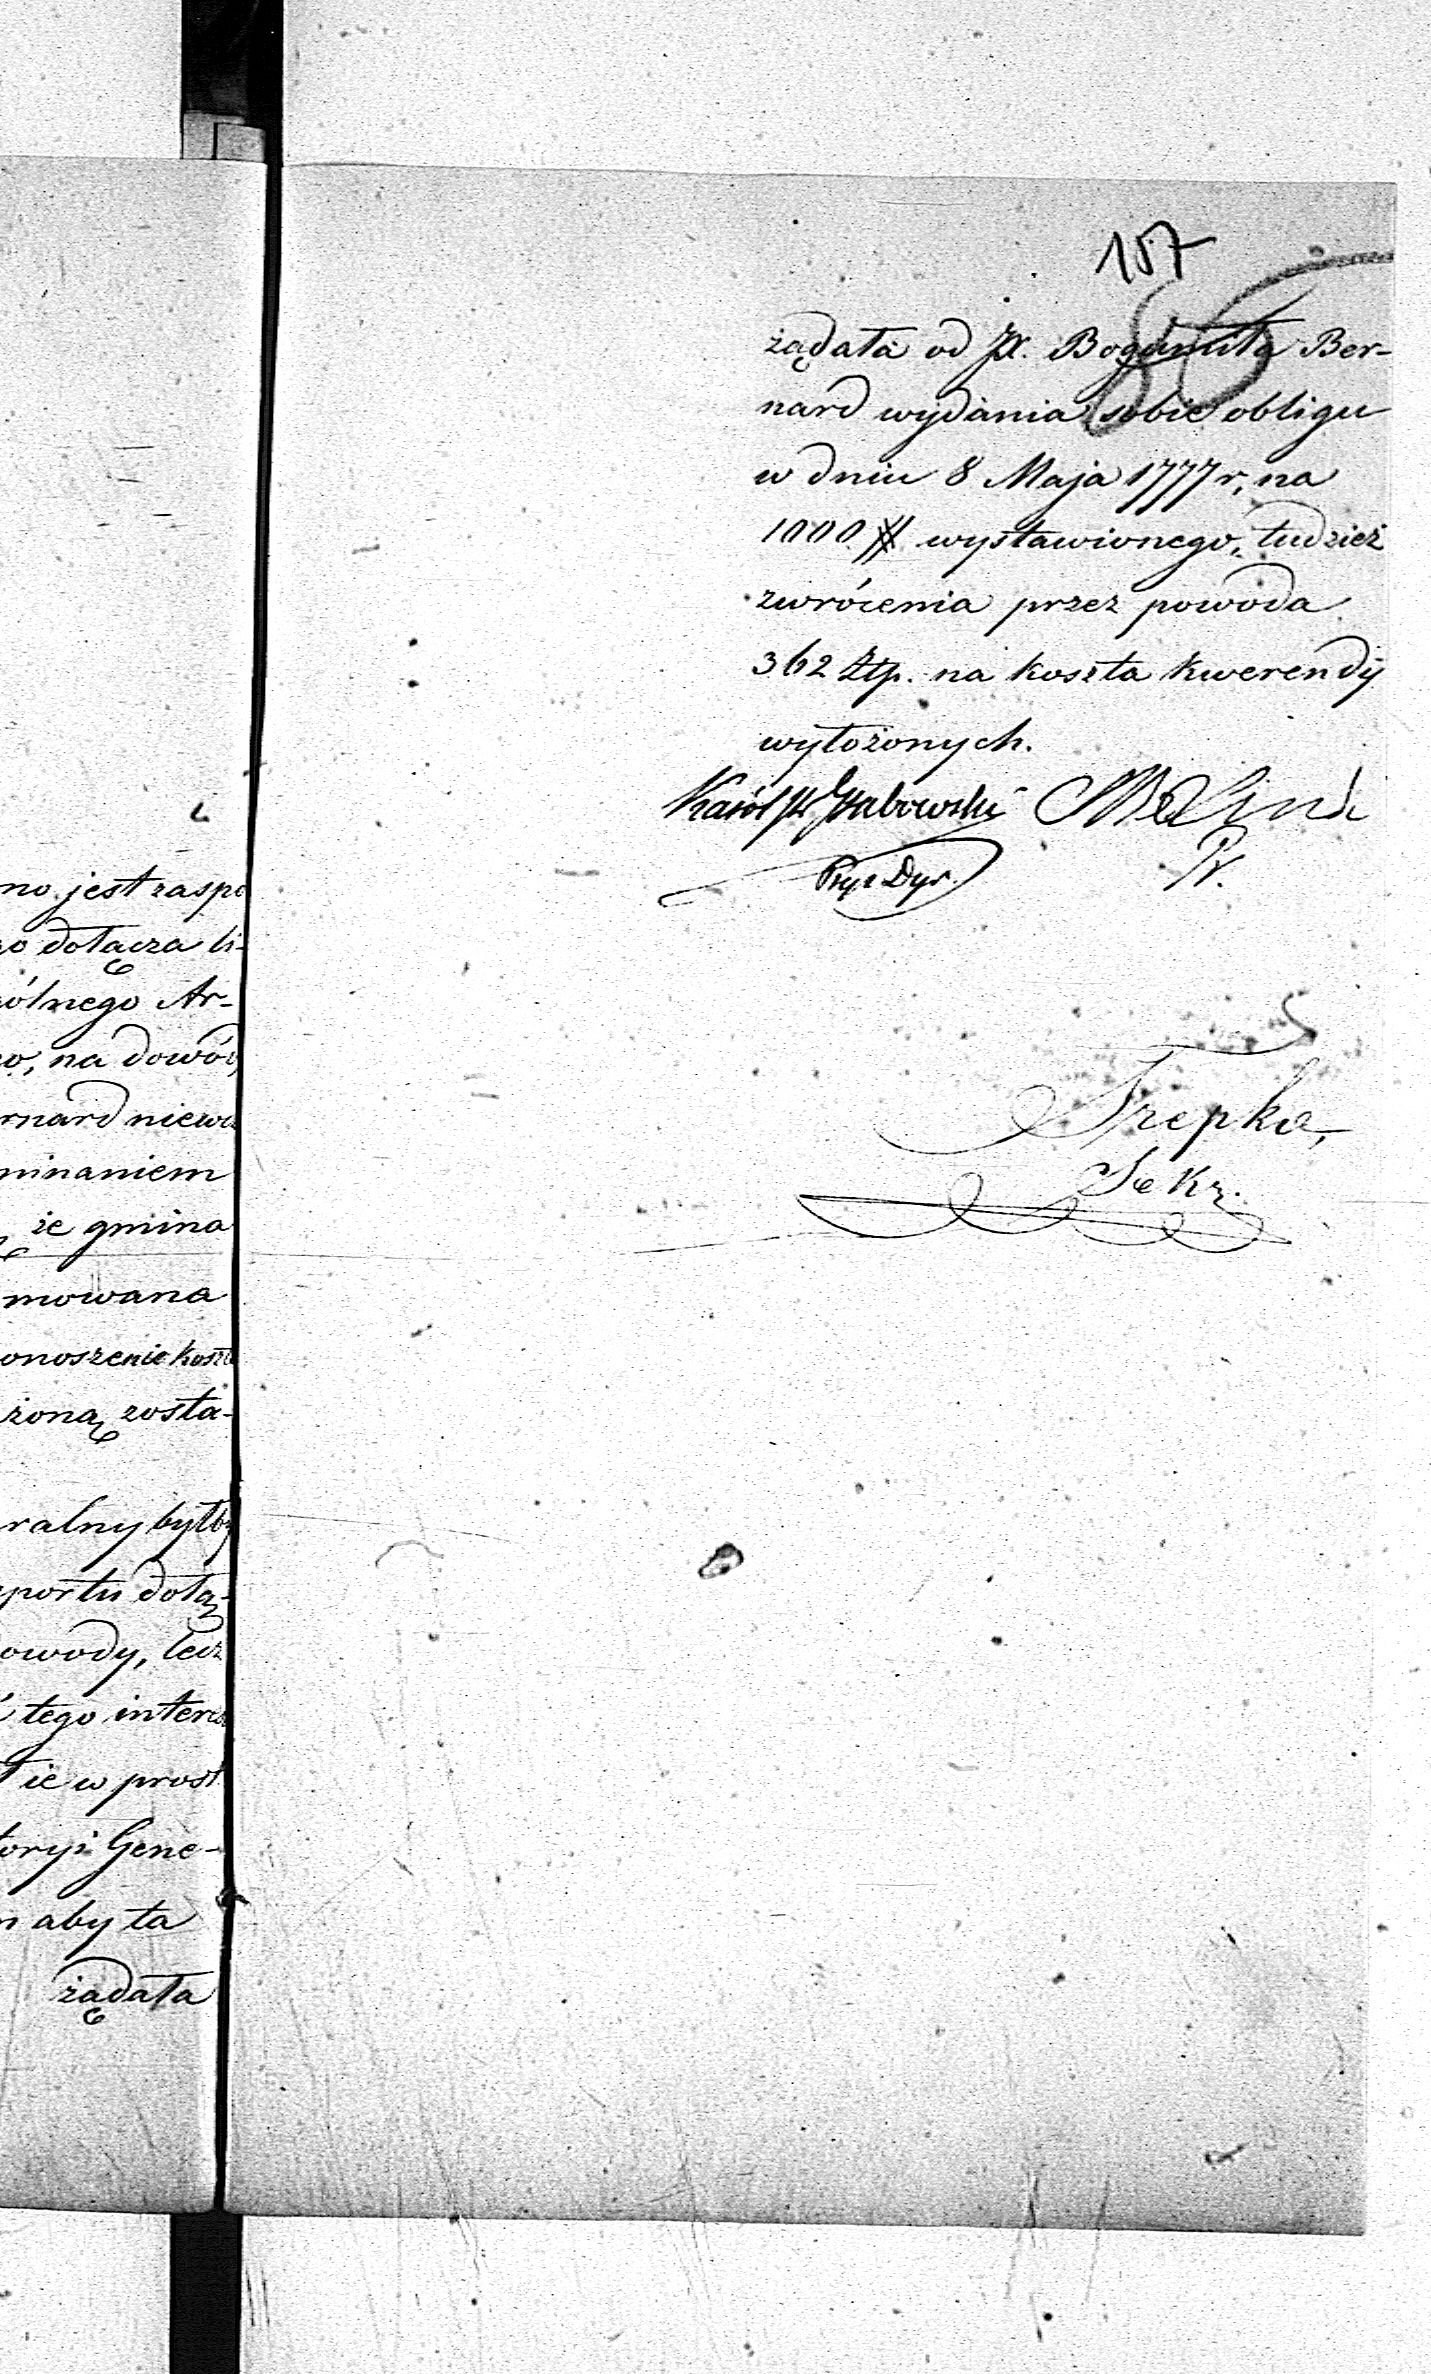 no jest zaspo
o dołącza li-
ólnego Ar-
o, na dowó
rnard niewa
minaniem
że gmina
mowana
onoszenie koszt
żoną zosta-
ralny byłby
portu dołą-
owody, lecz
tego intere
ie w prost
toryi Gene-
aby ta
żądała
157
86
żądała od Bogumiła Ber-
nard wydania sobie obligu
w dniu 8 Maja 1777 r, na
1000 # wystawionego, tudzież
zwrócenia przez powoda
362 Złp. na koszta kwerendy
wyłożonych.
Karól Grabowski
Dyr.
Pr.
Trepka,
Sekr.